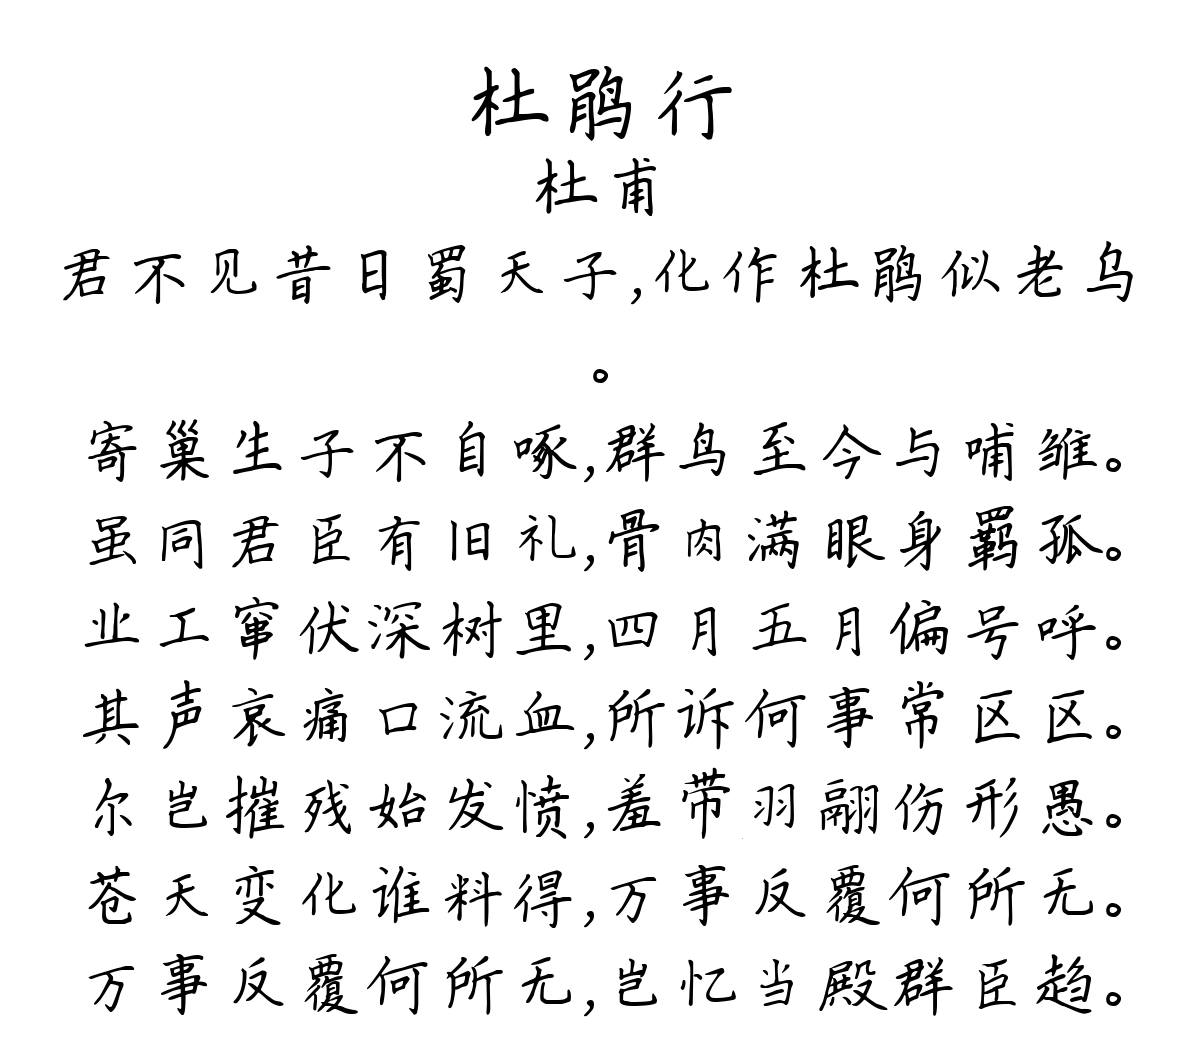 杜鹃行
杜甫
君不见昔日蜀天子,化作杜鹃似老乌
。
寄巢生子不自啄,群鸟至今与哺雏。
虽同君臣有旧礼,骨肉满眼身羁孤。
业工窜伏深树里,四月五月偏号呼。
其声哀痛口流血,所诉何事常区区。
尔岂摧残始发愤,羞带羽翮伤形愚。
苍天变化谁料得,万事反覆何所无。
万事反覆何所无,岂忆当殿群臣趋。